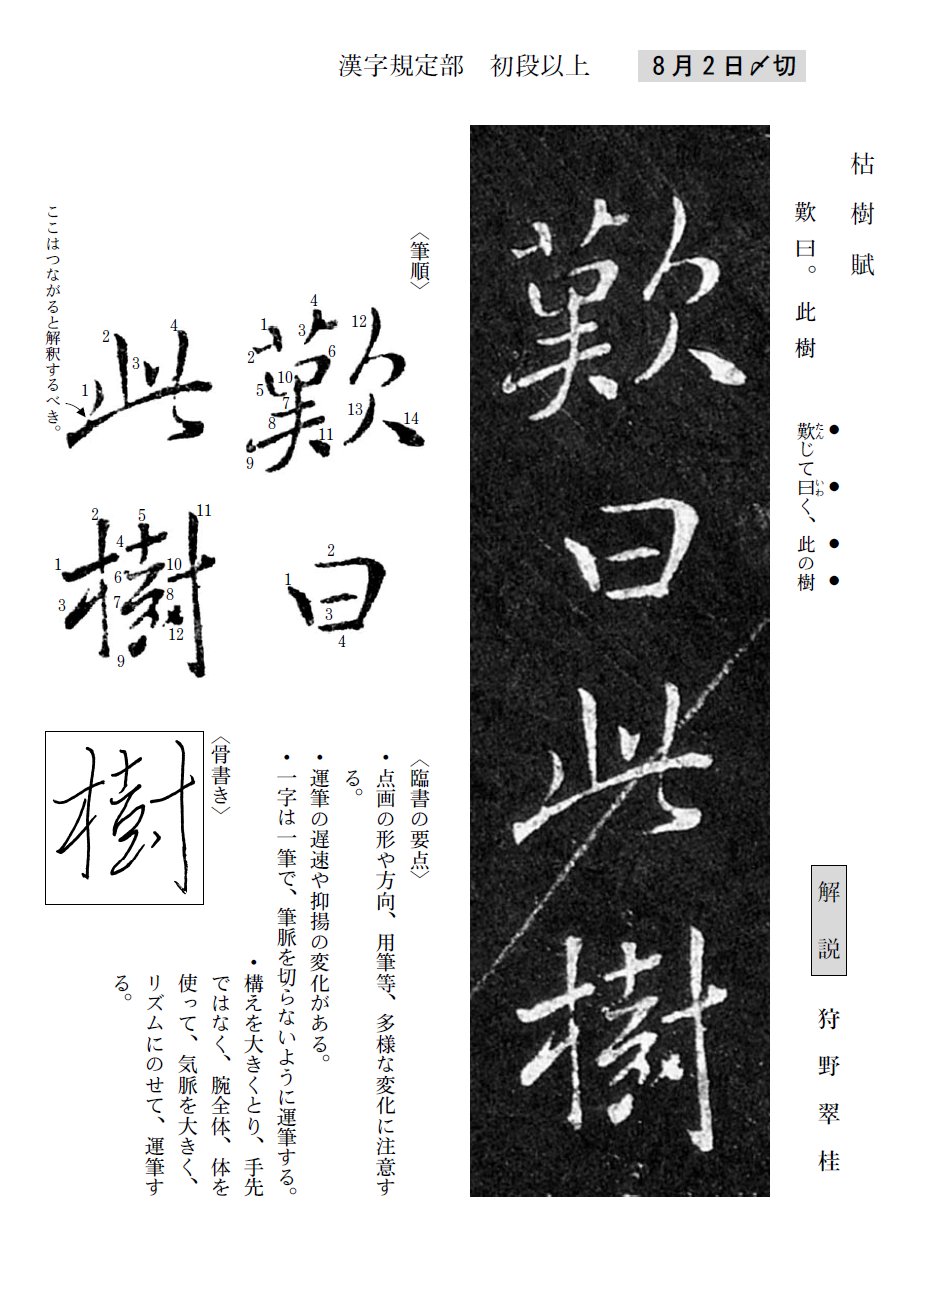 漢字規定部 初段以上
8月2日〆切
枯樹賦
歎曰。此樹
歎じて曰く、此の樹
たん
いわ
解説
狩野翠桂
歎曰此樹
〈筆順〉
歎
1
2
3
4
5
6
7
8
9
10
11
12
13
14
曰
1
2
3
4
此
1
2
3
4
ここはつながると解釈するべき。
樹
1
2
3
4
5
6
7
8
9
10
11
12
〈臨書の要点〉
・点画の形や方向、用筆等、多様な変化に注意す
る。
・運筆の遅速や抑揚の変化がある。
・一字は一筆で、筆脈を切らないように運筆する。
・構えを大きくとり、手先
ではなく、腕全体、体を
使って、気脈を大きく、
リズムにのせて、運筆す
る。
〈骨書き〉
樹